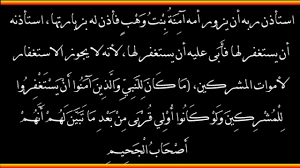 استأذن ربه أن يزور أمه آمِنَةُ بِنْتُ وَهْبٍ فأذن له بزيارتها، استأذنه
أن يستغفر لها فأَبَى عليه أن يستغفر لها، لأنه لا يجوز الاستغفار
لأموات المشركين، (مَا كَانَ لِلنَّبِيِّ وَالَّذِينَ آمَنُوا أَنْ يَسْتَغْفِرُوا
لِلْمُشْرِكِينَ وَلَوْ كَانُوا أُوْلِي قُرْبَى مِنْ بَعْدِ مَا تَبَيَّنَ لَهُمْ أَنَّهُمْ
أَصْحَابُ الْجَحِيمِ